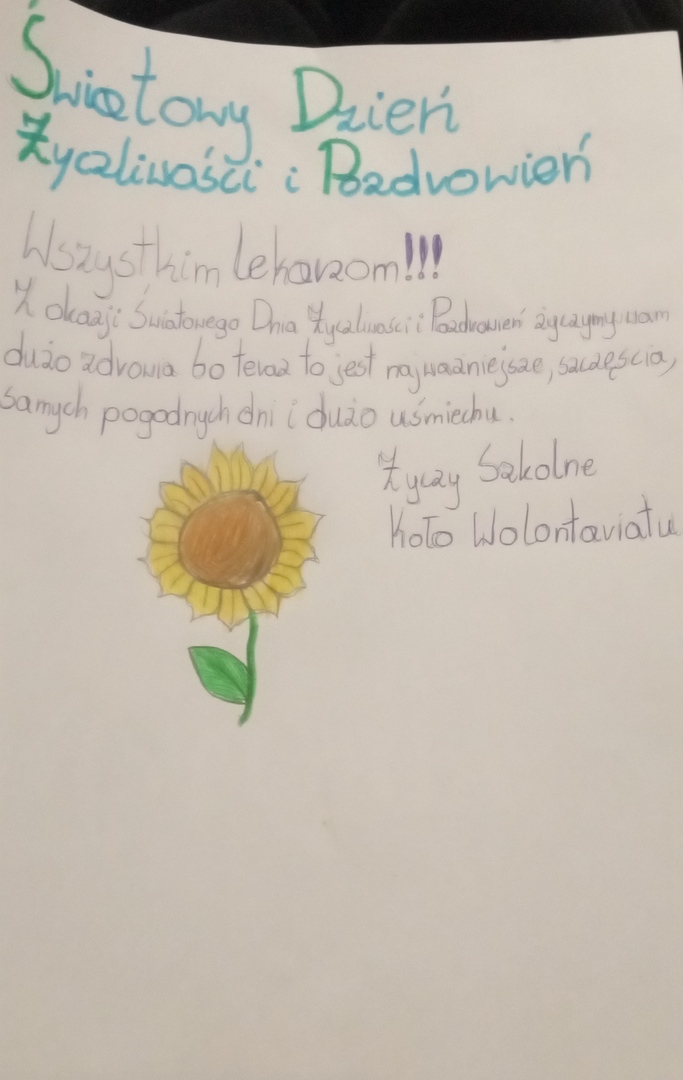 Światowy Dzień
Życzliwości i Pozdrowień
Wszystkim lekarzom!!!
Z okazji Światowego Dnia Życzliwości i Pozdrowień życzymy wam
dużo zdrowia bo teraz to jest najważniejsze, szczęścia,
samych pogodnych dni i dużo uśmiechu.
Życzy Szkolne
Koło Wolontariatu